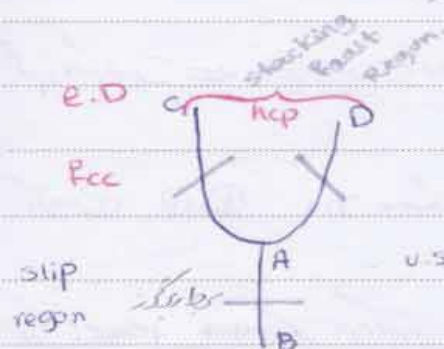 stacking
fault
Region
e.D
C hcp D
Fcc
A
slip
region
u.s
B